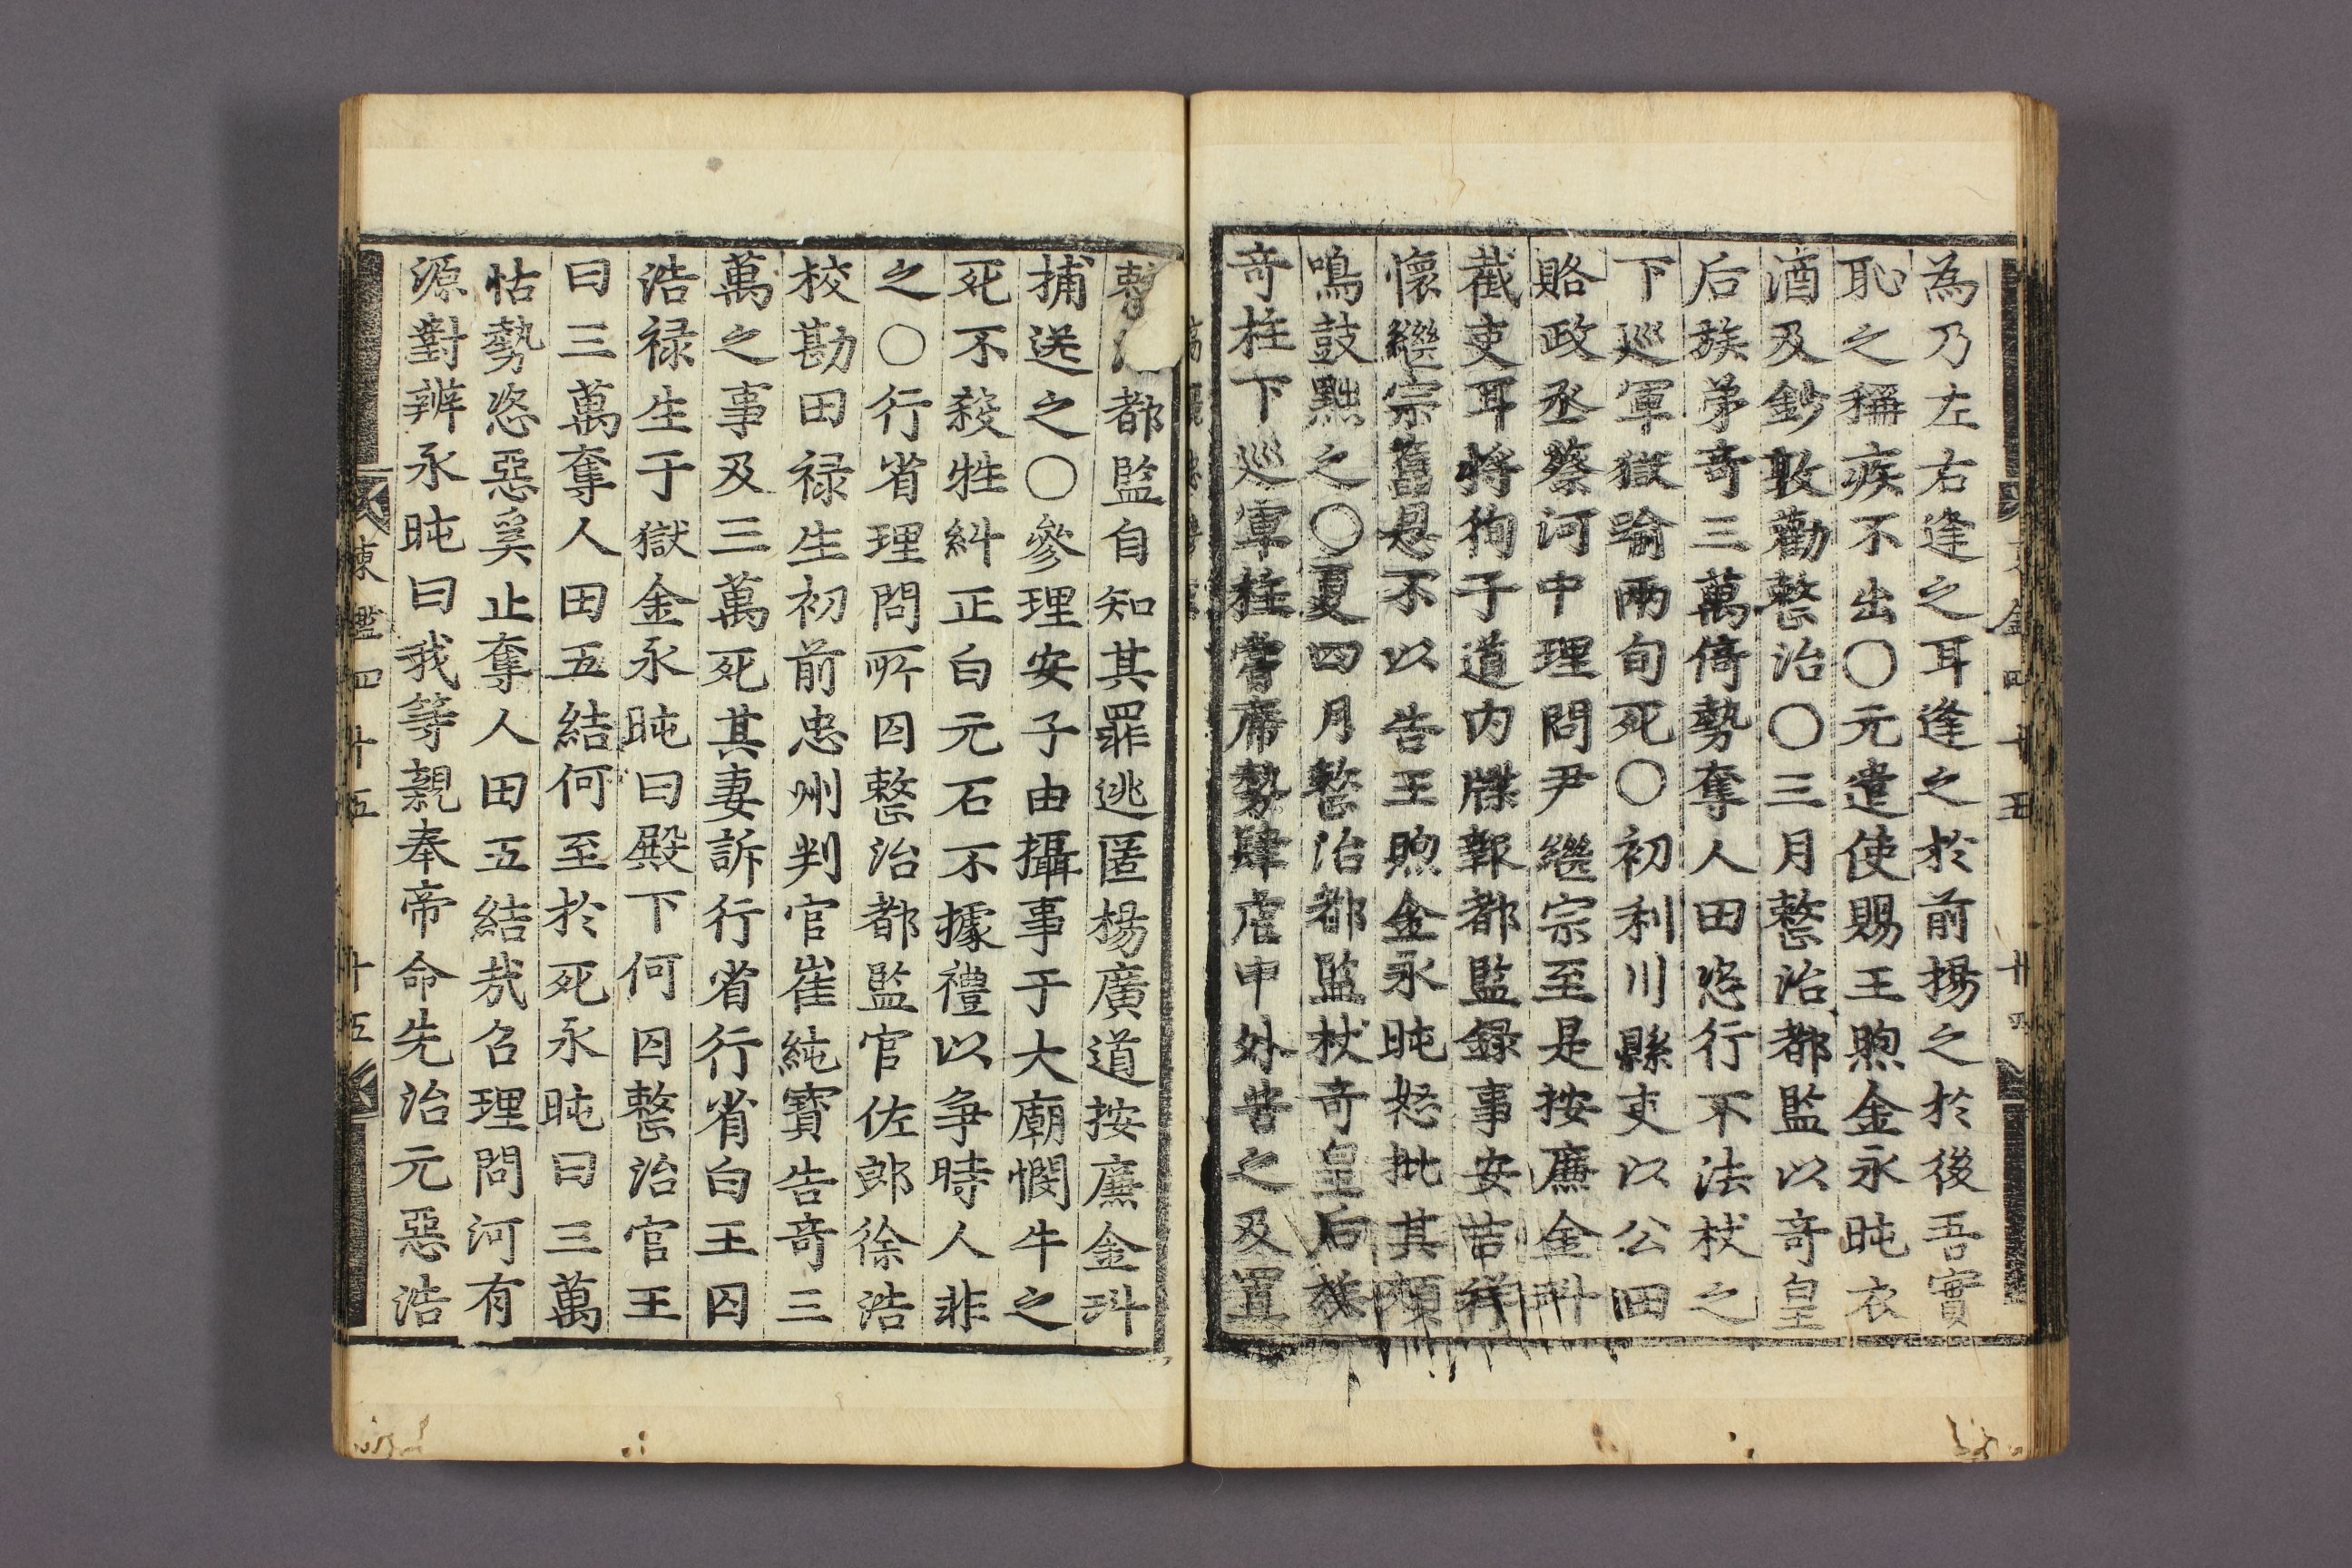 為乃左右逢之耳逢之於前揚之於後吾實
恥之稱疾不出○元遣使賜王煦金永旽衣
酒及鈔敦勸整治○三月整治都監以竒皇
后族弟竒三萬倚勢奪人田恣行不法杖之
下巡軍獄踰兩旬死○初利川縣吏以公田
賂政丞蔡河中理問尹繼宗至是按廉金㪺
截吏耳將徇于道内牒報都監録事安吉祥
懐繼宗舊恩不以告王煦金永旽怒批其頰
鳴鼓黜之○夏四月整治都監杖竒皇后族
竒柱下巡軍柱嘗席勢肆虐中外苦之及置
整治都監自知其罪逃匿楊廣道按廉金㪺
捕送之○參理安子由攝事于大廟憫牛之
死不殺牲糾正白元石不據禮以争時人非
之○行省理問所囚整治都監官佐郎徐浩
校勘田禄生初前忠州判官崔純寳告竒三
萬之事及三萬死其妻訴行省行省白王囚
浩禄生于獄金永旽曰殿下何囚整治官王
曰三萬奪人田五結何至於死永旽曰三萬
怙勢恣惡奚止奪人田五結哉召理問河有
源對辨永旽曰我等親奉帝命先治元惡浩
東鑑四十五 十五